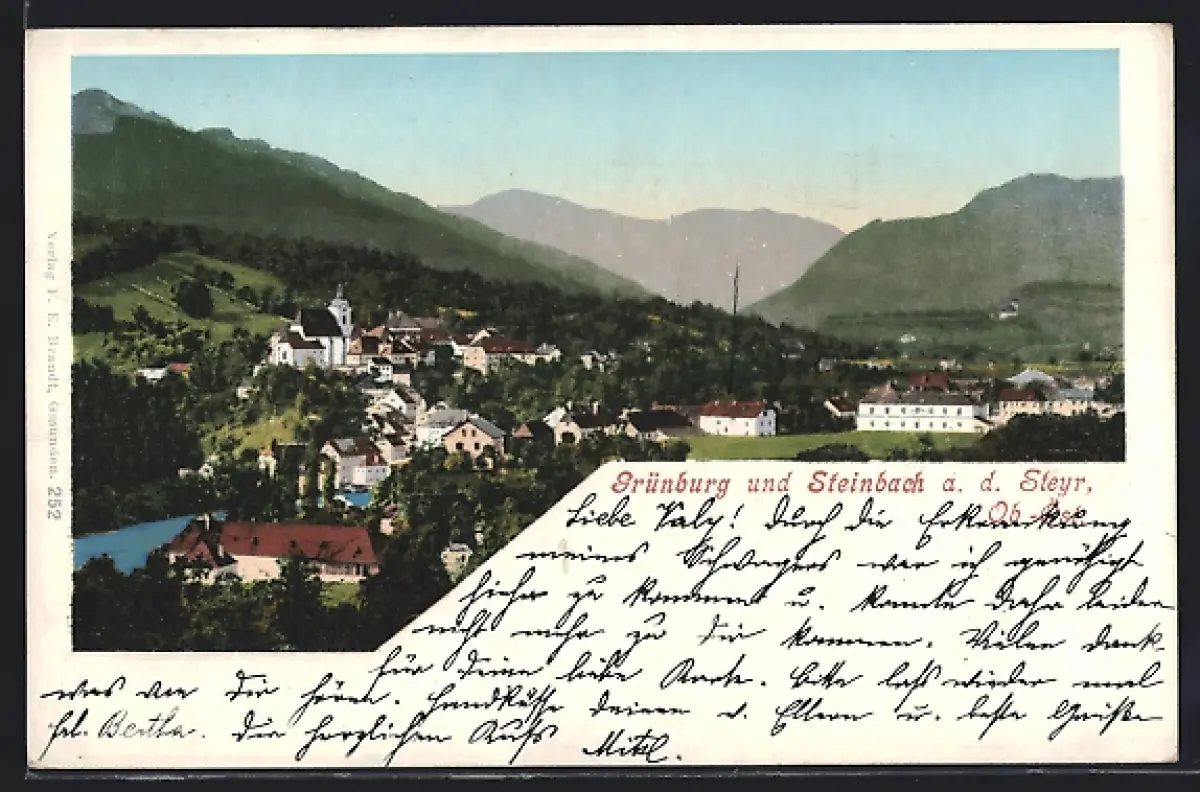 Verlag F. E. Brandt, Gmunden. 252
Grünburg und Steinbach a. d. Steyr,
Ob.-Öst.
Liebe Valy! Durch die Erkrankung
meines Schwagers war ich genötigt
hieher zu kommen u. konnte daher leider
nicht mehr zu Dir kommen. Vielen Dank
für Deine liebe Karte. Bitte laß wieder mal
was von Dir hören. Handküsse Deinen l. Eltern u. beste Grüße
frl. Bertha. Dir herzlichen Kuß